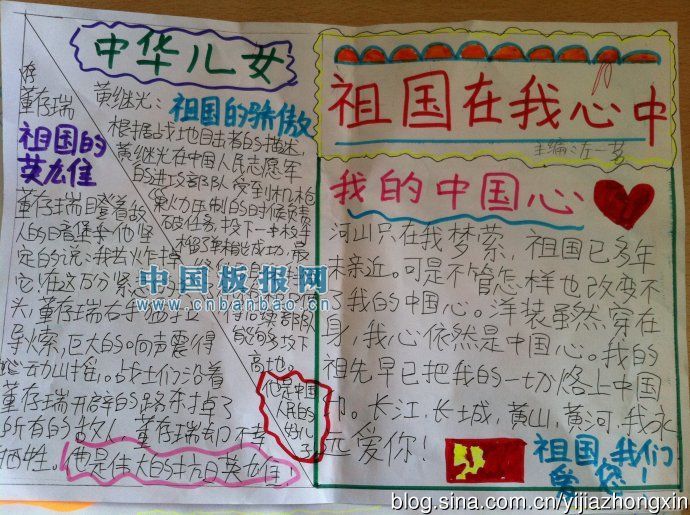 中华儿女
董存瑞
祖国的
英雄
董存瑞瞪着敌
人的暗堡 他坚
定的说：我去炸掉
它！在这万分紧
头，董存瑞右手
导火索，巨大的响声震得
动山摇。战士们沿着
董存瑞开辟的路
所有的敌人，董存瑞却不幸
牺牲。他是伟大的抗日英雄！
黄继光：祖国的骄傲
根据战地目击者的描述，
黄继光在中国人民志愿军
的进攻部队受到机枪
火力压制的时候负责
破任务，投下一
成功，最
部队
攻下
高地。
他是中国
人民的
好儿
子
祖国在我心中
主编：左一梦
我的中国心
河山只在我梦萦，祖国已多年
未亲近。可是不管怎样也改变不
了我的中国心。洋装虽然穿在
身，我心依然是中国心。我的
祖先早已把我的一切烙上中国
印。长江，长城，黄山，黄河，我永
远爱你！
祖国，我们
爱您！
中国板报网
www.cnbanbao.cn
blog.sina.com.cn/yijiazhongxin